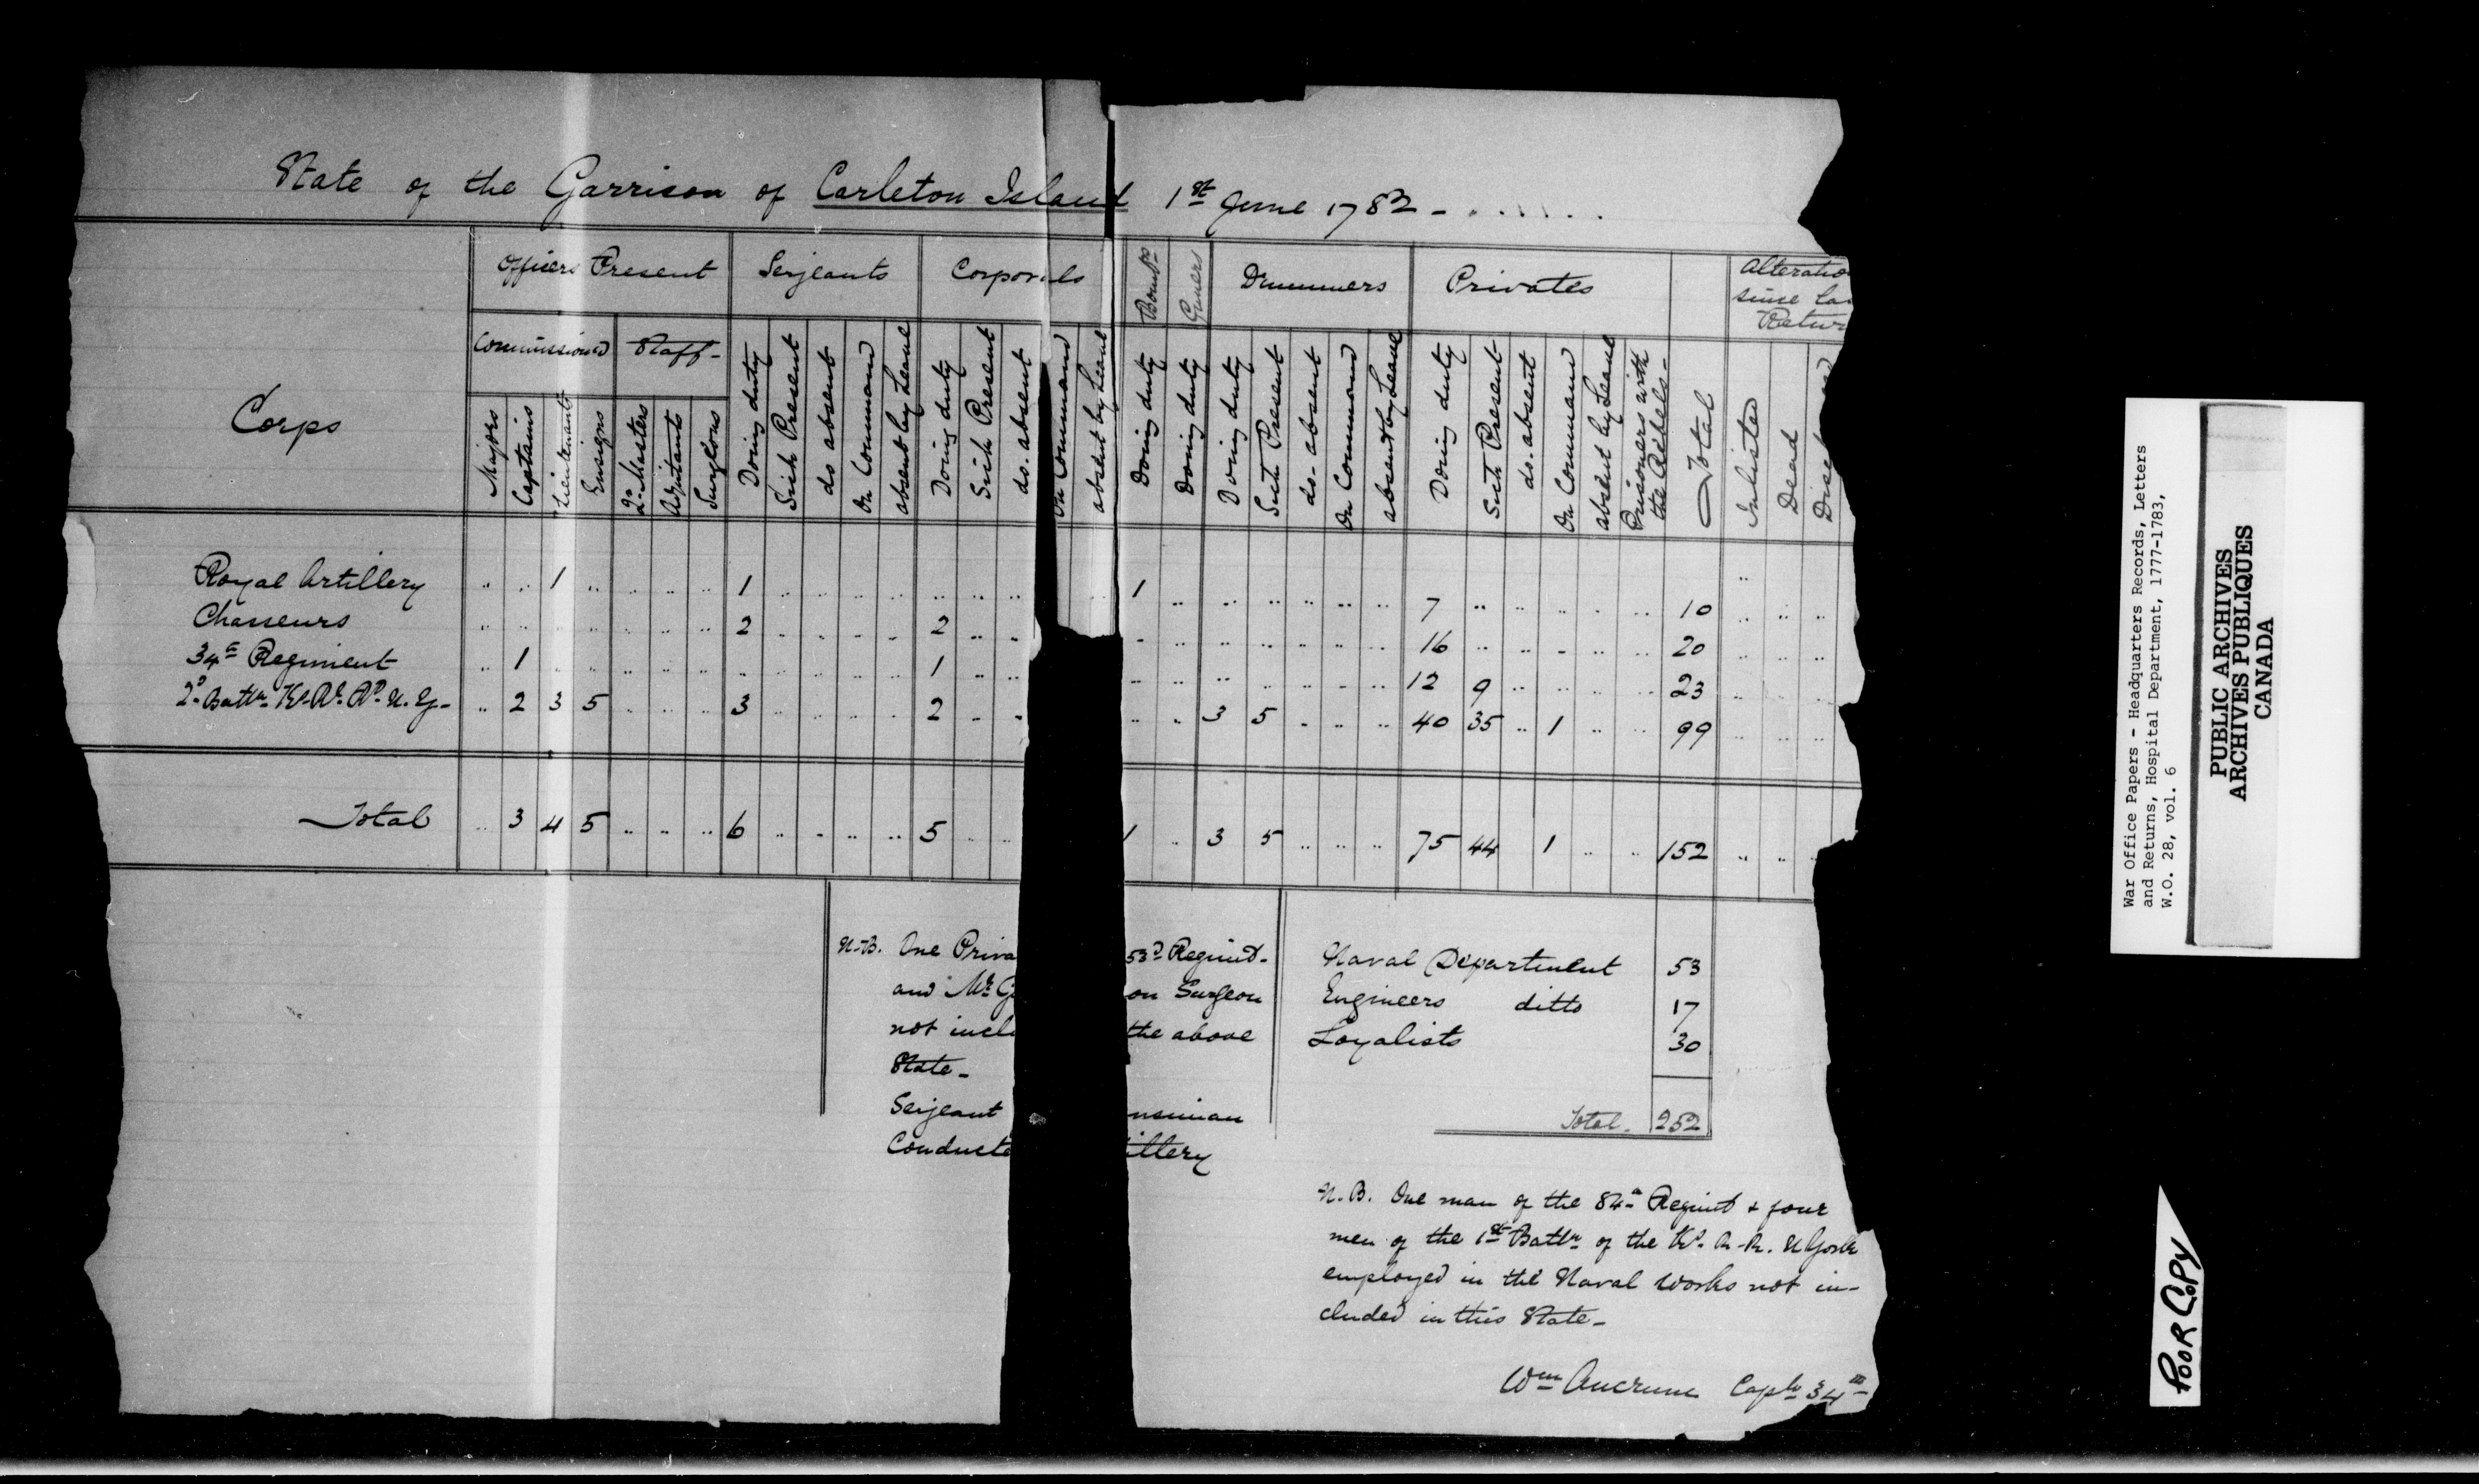 State of the Garrison of Carleton Island 1st June 1782 -
Officers Present Serjeants Corporals Bombrs Guners Drummers Privates Alteratio
since La
Retur
Commissioned Staff-
Corps
Majors Captains Lieutenants Ensigns Qr. Masters Adjutants Surgeons Doing duty Sick Present do absent On Command absent by Leave Doing duty Sick Present do. absent On Command absent by Leave Doing duty Doing duty Doing duty Sick Present do. absent On Command absent by Leave Doing duty Sick Present do. absent On Command absent by Leave Prisoners with the Rebels- Total Inlisted Dead
Royal Artillery .. .. 1 .. .. .. .. 1 .. .. .. .. .. .. .. 1 .. .. .. .. .. .. 7 .. .. .. .. .. 10 .. .. ..
Chasseurs .. .. .. .. .. .. .. 2 .. .. .. .. 2 .. .. .. .. .. .. .. .. .. 16 .. .. .. .. .. 20 .. .. ..
34th Regiment .. 1 .. .. .. .. .. .. .. .. .. .. 1 .. .. .. .. .. .. .. .. .. 12 9 .. .. .. .. 23 .. .. ..
2d. Battn. K's. Rl. Rt. N. Y- .. 2 3 5 .. .. .. 3 .. .. .. .. 2 .. .. .. .. 3 5 .. .. .. 40 35 .. 1 .. .. 99 .. .. ..
Total .. 3 4 5 .. .. .. 6 .. .. .. .. 5 .. .. 1 .. 3 5 .. .. .. 75 44 1 .. .. 152 .. .. ..
N.B. One Priva 53d Regimt-
and Mr. G on Surgeon
not inclu the above
State-
Serjeant nsiman
Conducto illery
Naval Department 53
Engineers ditto 17
Loyalists 30
Total. 252
N.B. One man of the 84th Regimt & four
men of the 1st Battn of the K's. R. R. N York
employed in the Naval Works not in-
cluded in this State-
Wm Ancrum Captn 34th
War Office Papers - Headquarters Records, Letters
and Returns, Hospital Department, 1777-1783,
W.O. 28, vol. 6
PUBLIC ARCHIVES
ARCHIVES PUBLIQUES
CANADA
POOR COPY